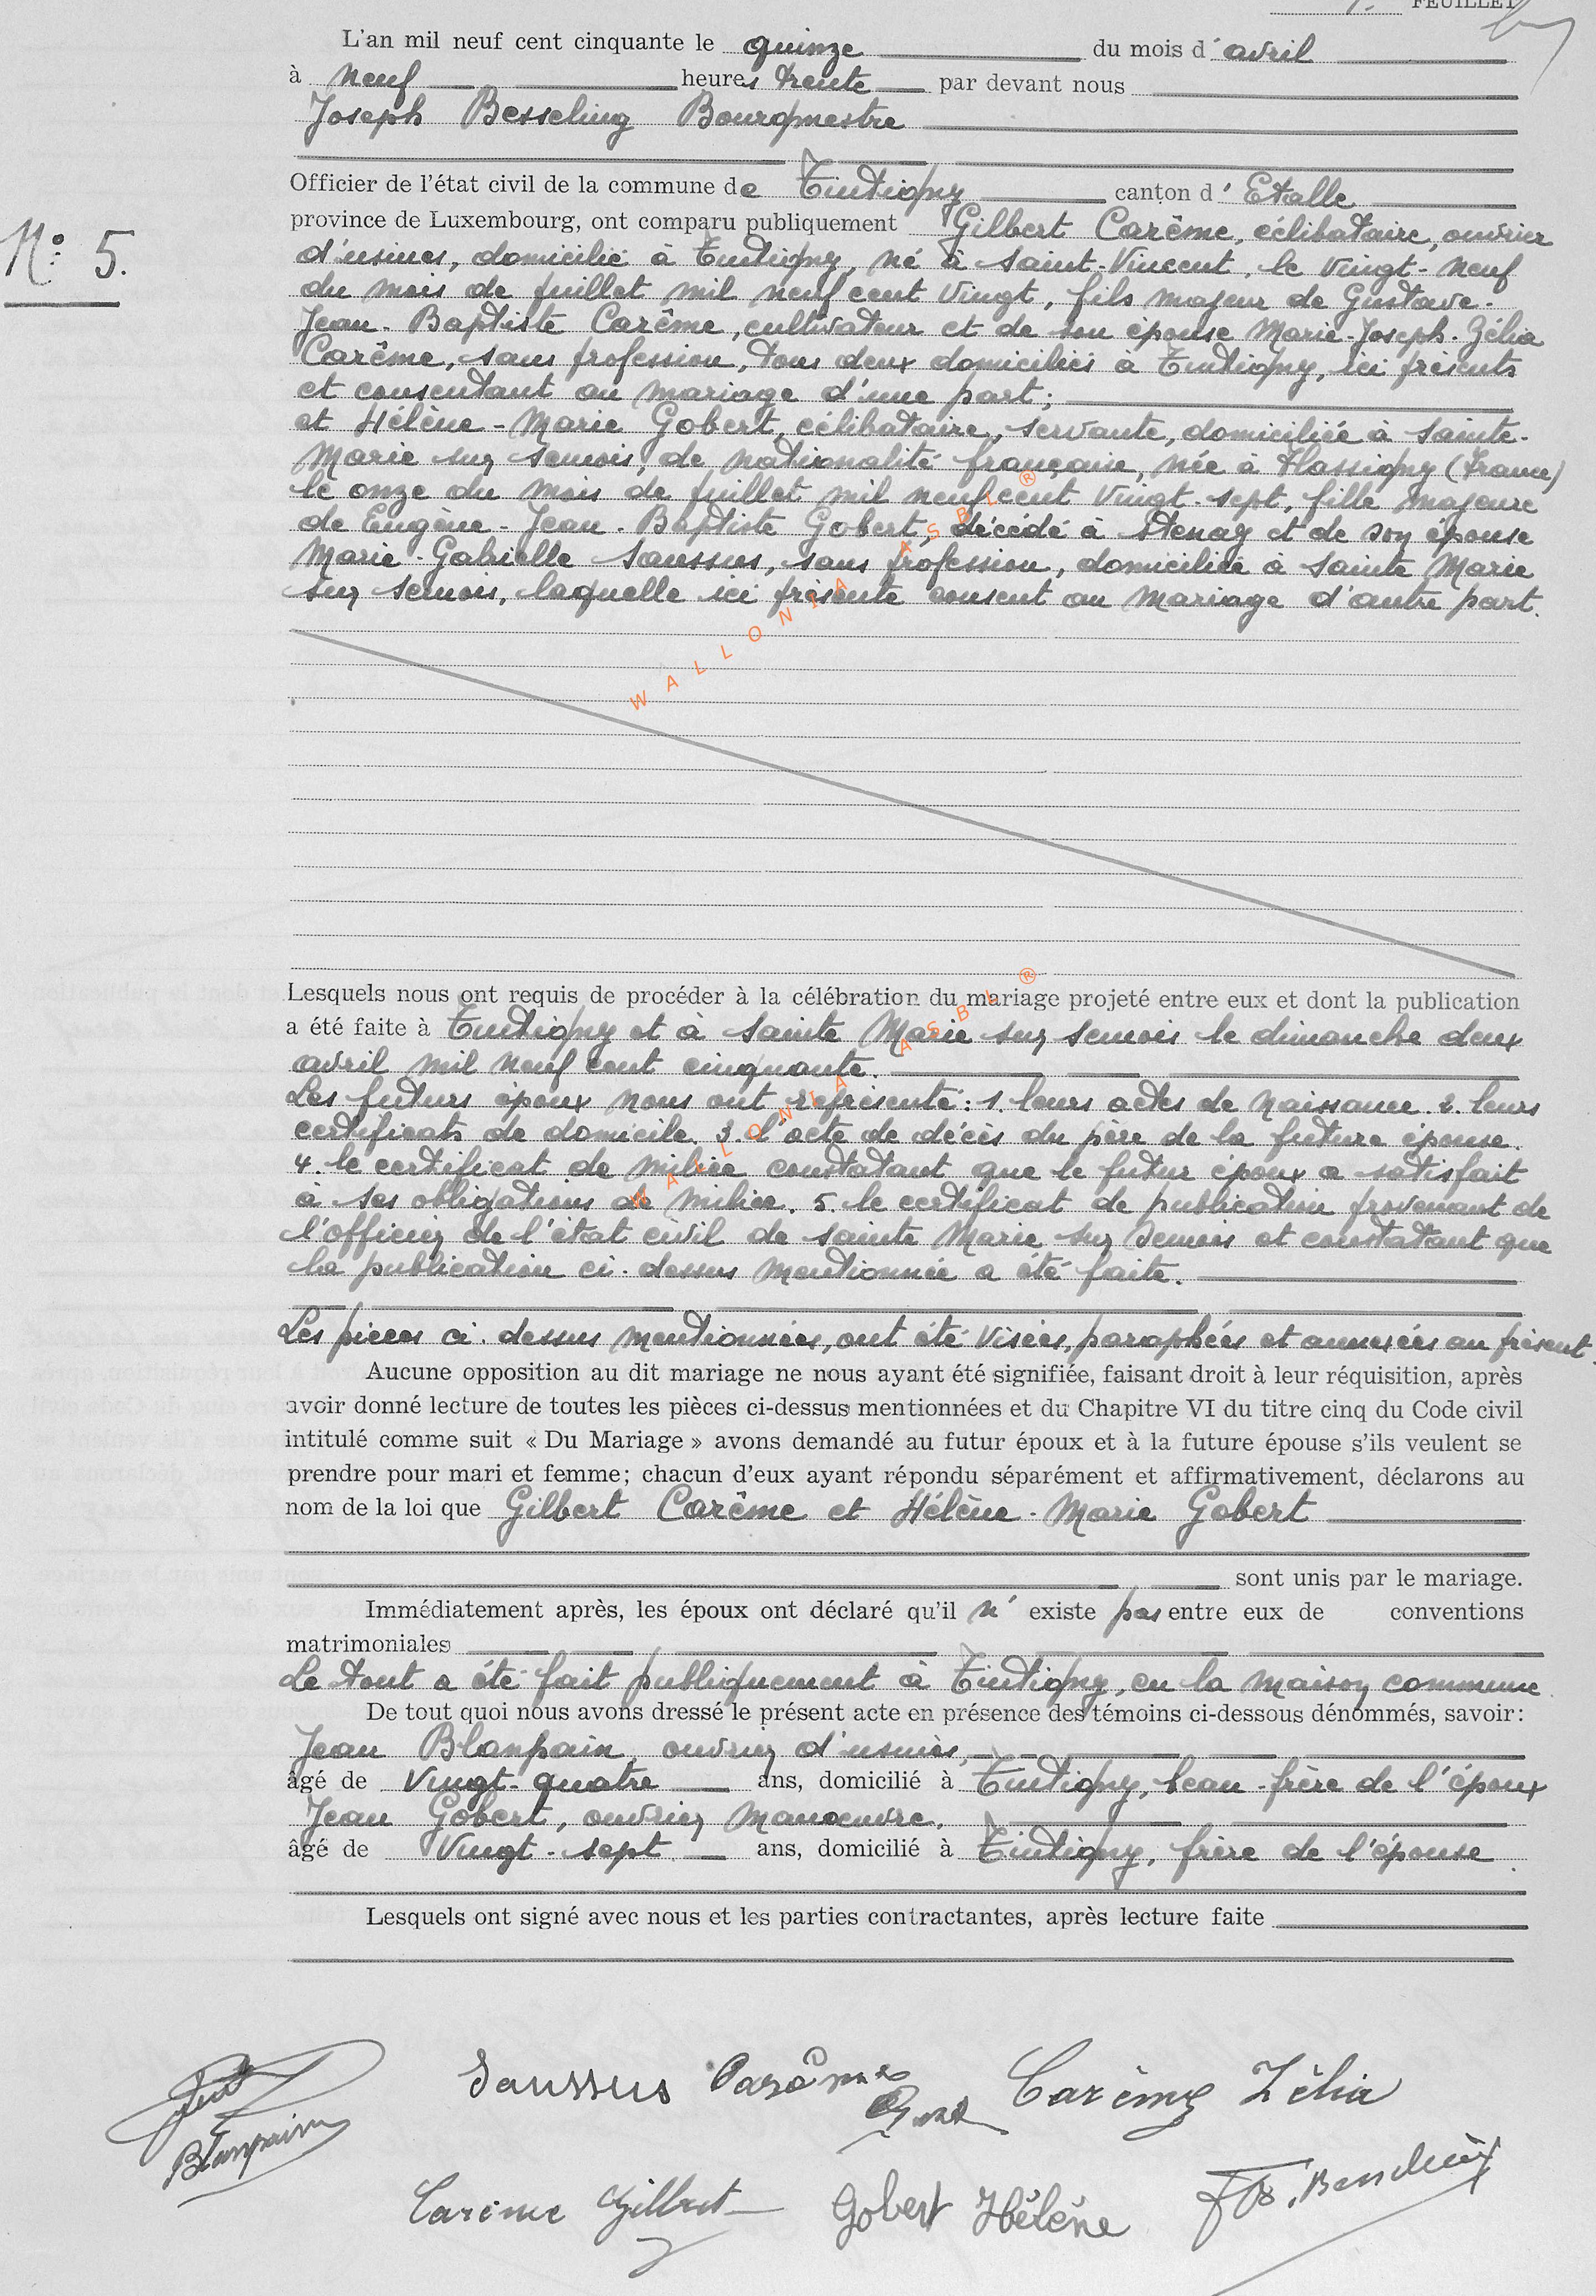 FEUILLET
L'an mil neuf cent cinquante le quinze du mois d'avril
à neuf heures trente par devant nous
Joseph Besseling Bourgmestre
Officier de l'état civil de la commune de Tintigny canton d'Etalle
province de Luxembourg, ont comparu publiquement Gilbert Carême, célibataire, ouvrier
N° 5.
d'usines, domicilié à Tintigny, né à Saint-Vincent, le vingt-neuf
du mois de juillet mil neuf cent vingt, fils majeur de Gustave-
Jean-Baptiste Carême, cultivateur et de son épouse Marie-Joseph-Zélia
Carême, sans profession, tous deux domiciliés à Tintigny, ici présents
et consentant au mariage d'une part;
et Hélène-Marie Gobert, célibataire, servante, domiciliée à Sainte-
Marie sur Semois, de nationalité française, née à Flassigny (France)
le onze du mois de juillet mil neuf cent vingt-sept, fille majeure
de Eugène-Jean-Baptiste Gobert, décédé à Stenay et de son épouse
Marie-Gabrielle Saussus, sans profession, domiciliée à Sainte Marie
sur Semois, laquelle ici présente consent au mariage d'autre part.
WALLONIA ASBL ®
Lesquels nous ont requis de procéder à la célébration du mariage projeté entre eux et dont la publication
a été faite à Tintigny et à Sainte Marie sur Semois le dimanche deux
avril mil neuf cent cinquante.
Les futurs époux nous ont représenté: 1. leurs actes de naissance. 2. leurs
certificats de domicile. 3. l'acte de décès du père de la future épouse.
4. le certificat de milice constatant que le futur époux a satisfait
à ses obligations de milice. 5. le certificat de publication provenant de
l'officier de l'état civil de Sainte Marie sur Semois et constatant que
la publication ci-dessus mentionnée a été faite.
WALLONIA ASBL ®
Les pièces ci-dessus mentionnées, ont été visées, paraphées et annexées au présent.
Aucune opposition au dit mariage ne nous ayant été signifiée, faisant droit à leur réquisition, après
avoir donné lecture de toutes les pièces ci-dessus mentionnées et du Chapitre VI du titre cinq du Code civil
intitulé comme suit « Du Mariage » avons demandé au futur époux et à la future épouse s'ils veulent se
prendre pour mari et femme; chacun d'eux ayant répondu séparément et affirmativement, déclarons au
nom de la loi que Gilbert Carême et Hélène-Marie Gobert
sont unis par le mariage.
Immédiatement après, les époux ont déclaré qu'il n'existe pas entre eux de conventions
matrimoniales
Le tout a été fait publiquement à Tintigny, en la maison commune
De tout quoi nous avons dressé le présent acte en présence des témoins ci-dessous dénommés, savoir:
Jean Blanpain, ouvrier d'usines,
âgé de vingt-quatre ans, domicilié à Tintigny, beau-frère de l'époux
Jean Gobert, ouvrier manoeuvre,
âgé de vingt-sept ans, domicilié à Tintigny, frère de l'épouse
Lesquels ont signé avec nous et les parties contractantes, après lecture faite
Saussus Carême Carême Zélia
Blanpain
Carême Gilbert Gobert Hélène